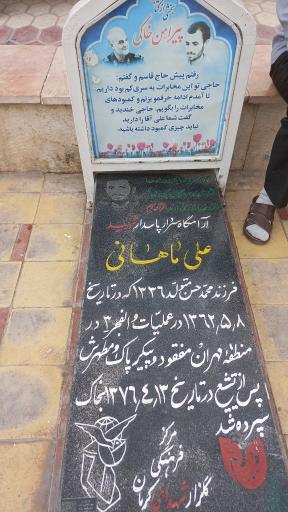 پیراهن خاکی
رفتم پیش حاج قاسم و گفتم:
حاجی تو این مخابرات یه سری کم بود داریم
تا آمدم ادامه حرفمو بزنم و کمبودهای
مخابرات را بگویم. حاجی خندید و
گفت شما علی آقا را دارید
نباید چیزی کمبود داشته باشید.
آرامگاه سردار پاسدار شهید
علی ماهانی
فرزند محمدحسن متولد ۱۳۳۶ که در تاریخ
۱۳۶۲,۵,۸ در عملیات والفجر ۳ در
منطقه مهران مفقود و پیکر پاک و مطهرش
پس از تشیع در تاریخ ۱۳۷۶,۴,۱۳ بخاک
سپرده شد
مرکز
فرهنگی
گلزار شهدای کرمان